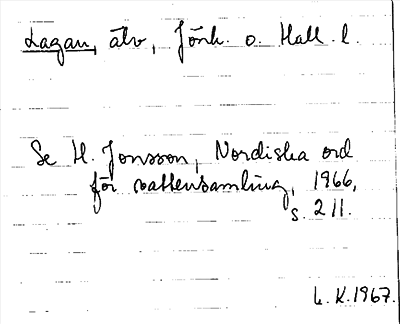 Lagan, älv, Jönk. o. Hall. l.
Se H. Jonsson, Nordiska ord
för vattensamling, 1966,
s. 211.
L. K. 1967.